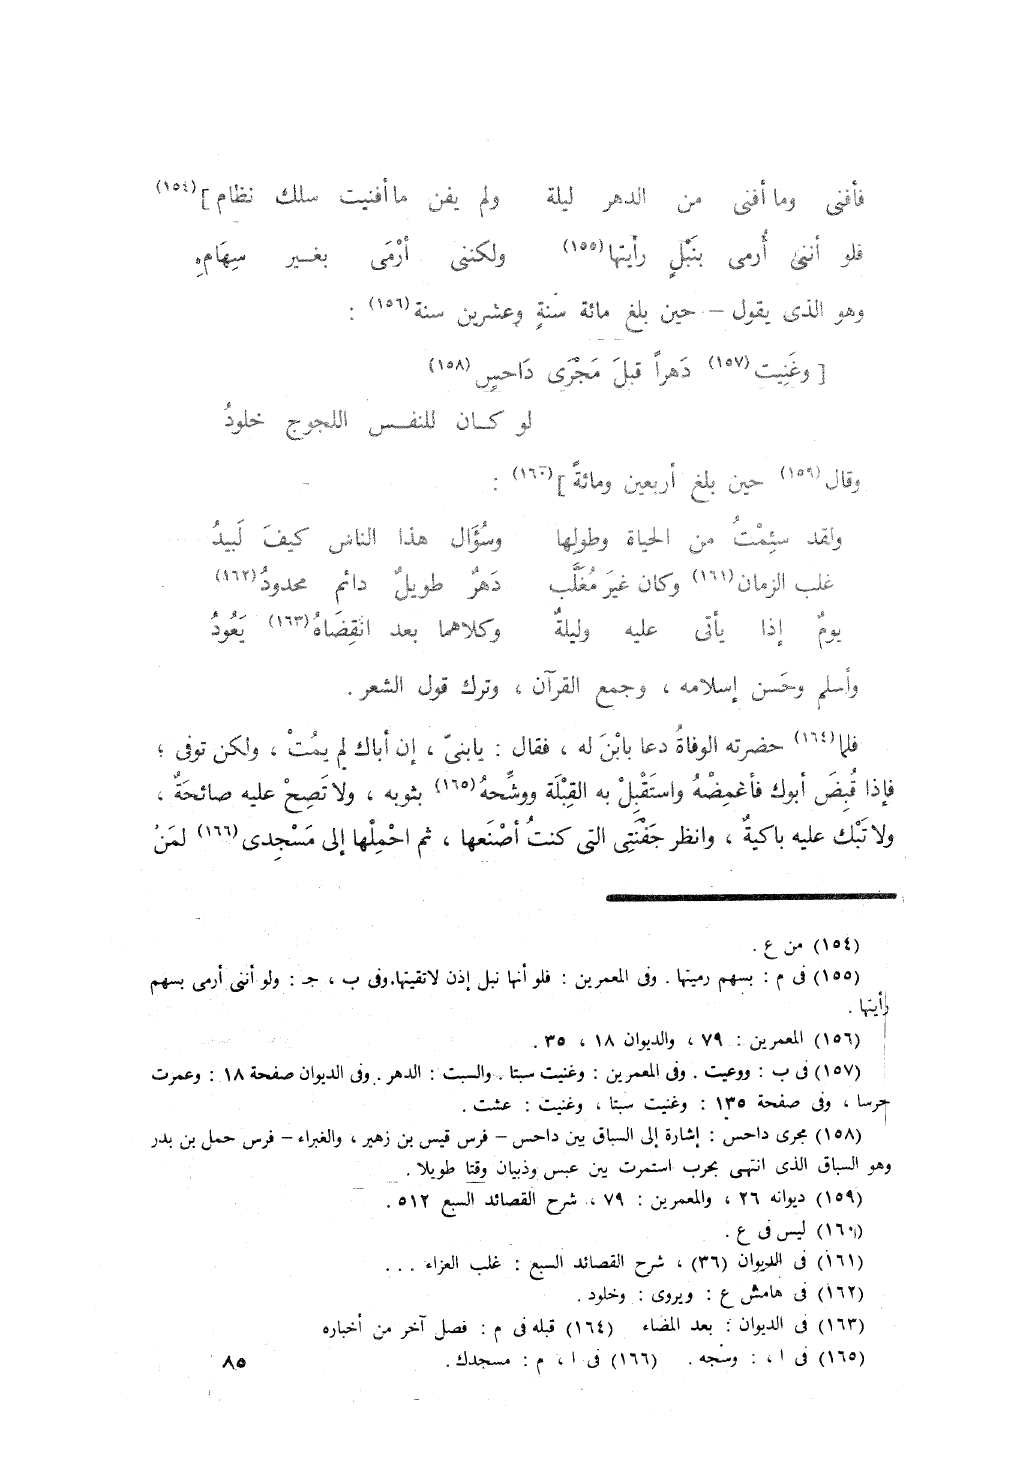 فأفنى وما أفنى من الدهر ليلة ولم يفن ما أفنيت سلك نظام ] (١٥٤)
فلو أننى أُرمى بنَبْلٍ رأيتها (١٥٥) ولكننى أرْمَى بغـير سِهَامِ
وهو الذى يقول – حين بلغ مائة سنةٍ وعشرين سنة (١٥٦) :
[ وغَنِيت (١٥٧) دَهراً قبلَ مَجْرَى دَاحسٍ (١٥٨)
لو كـان للنفـس اللجوج خلودُ
وقال (١٥٩) حين بلغ أربعين ومائةً ] (١٦٠) :
ولقد سئِمْتُ من الحياة وطولها وسُؤَال هذا الناس كيفَ لَبيدُ
غلب الزمان (١٦١) وكان غيرَ مُغَلَّب دَهرٌ طويلٌ دائم محدودُ (١٦٢)
يومٌ إذا يأتى عليه وليلةٌ وكلاهما بعد انْقِضَاهُ (١٦٣) يَعُودُ
وأسلم وحَسن إسلامه ، وجمع القرآن ، وترك قول الشعر .
فلما (١٦٤) حضرته الوفاةُ دعا بابْنَ له ، فقال : يابنىّ ، إن أباك لم يمُتْ ، ولكن توفى ؛
فإذا قُبِضَ أبوك فأغمِضْهُ واستَقْبِلْ به القِبْلَة ووشِّحهُ (١٦٥) بثوبه ، ولا تَصِحْ عليه صائحَةٌ ،
ولا تَبْك عليه باكيةٌ ، وانظر جَفْنَتِى التى كنتُ أصْنَعها ، ثم احْمِلْها إلى مَسْجِدى (١٦٦) لمَنْ
(١٥٤) من ع .
(١٥٥) فى م : بسهم رميتها . وفى المعمرين : فلو أنها نبل إذن لاتقيتها.وفى ب ، جـ : ولو أننى أرمى بسهم
رأيتها .
(١٥٦) المعمرين : ٧٩ ، والديوان ١٨ ، ٣٥ .
(١٥٧) فى ب : ووعيت . وفى المعمرين : وغنيت سبتا . والسبت : الدهر . وفى الديوان صفحة ١٨ : وعمرت
حرسا ، وفى صفحة ١٣٥ : وغنيت سبتا ، وغنيت : عشت .
(١٥٨) مجرى داحس : إشارة إلى السباق بين داحس – فرس قيس بن زهير ، والغبراء – فرس حمل بن بدر
وهو السباق الذى انتهى بحرب استمرت بين عبس وذبيان وقتا طويلا .
(١٥٩) ديوانه ٢٦ ، والمعمرين : ٧٩ ، شرح القصائد السبع ٥١٢ .
(١٦٠) ليس فى ع .
(١٦١) فى الديوان (٣٦) ، شرح القصائد السبع : غلب العزاء ...
(١٦٢) فى هامش ع : ويروى : وخلود .
(١٦٣) فى الديوان : بعد المضاء (١٦٤) قبله فى م : فصل آخر من أخباره
(١٦٥) فى ا ، : وسجه . (١٦٦) فى ا ، م : مسجدك .
٨٥